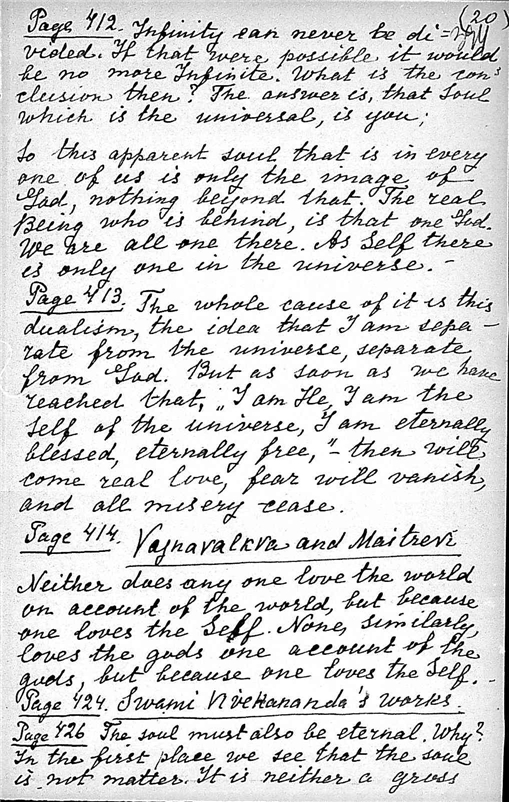 (20)
Page 412. Infinity can never be di=
vided. If that were possible it would
be no more Infinite. What is the con=
clusion then? The answer is, that Soul
which is the universal, is you;
So this apparent soul that is in every
one of us is only the image of
God, nothing beyond that. The real
Being who is behind, is that one God.
We are all one there. As Self there
is only one in the universe. -
Page 413. The whole cause of it is this
dualism, the idea that I am sepa-
rate from the universe, separate
from God. But as soon as we have
reached that, „I am He, I am the
Self of the universe, I am eternally
blessed, eternally free," - then will
come real love, fear will vanish,
and all misery cease.
Page 414. Vajnavalkva and Maitrevi
Neither does any one love the world
on account of the world, but because
one loves the Self. None, similarly,
loves the gods one account of the
gods, but because one loves the Self. -
Page 424. Swami Vivekananda's works.
Page 426 The soul must also be eternal. Why?
In the first place we see that the soul
is not matter. It is neither a gross